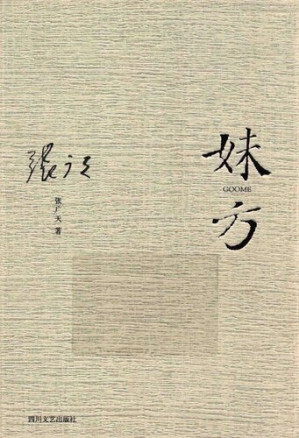 妹方
GOOME
张广天 著
四川文艺出版社